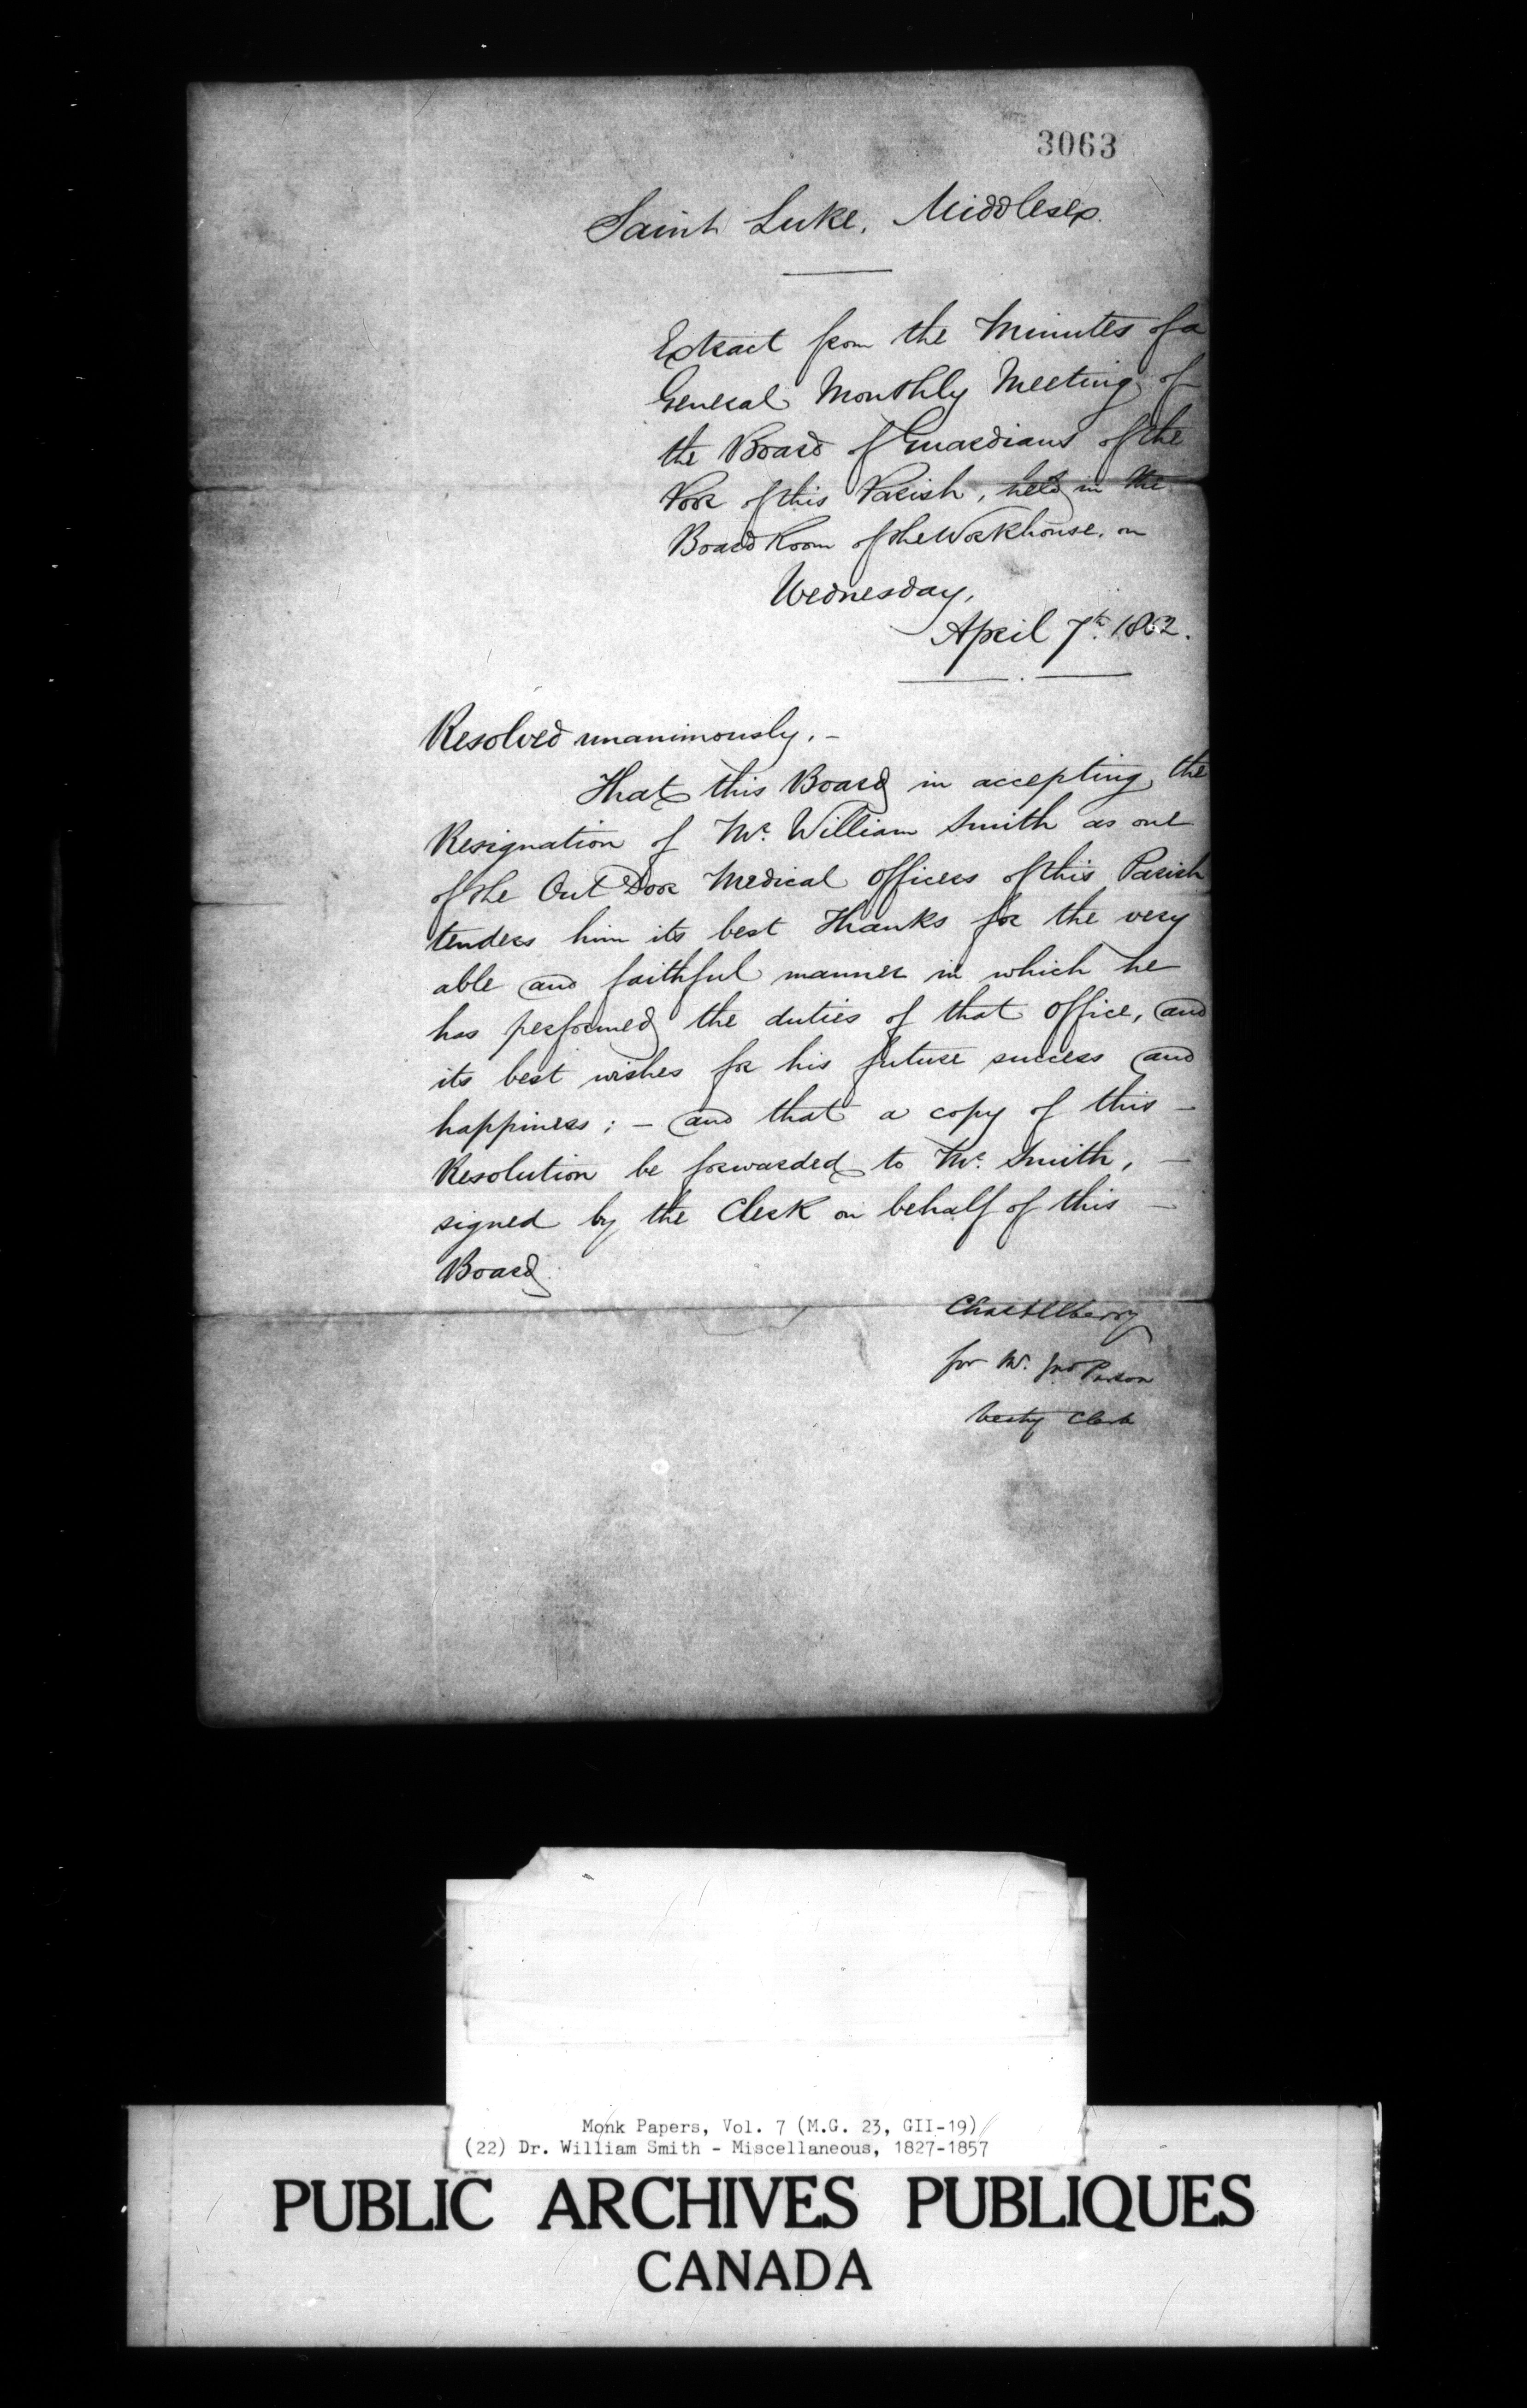 3063
Saint Luke, Middlesex.
Extract from the Minutes of a
General Monthly Meeting of
the Board of Guardians of the
Poor of this Parish, held in the
Board Room of the Workhouse, on
Wednesday,
April 7th. 1862.
Resolved unanimously, -
That this Board in accepting the
Resignation of Mr. William Smith as one
of the Out Door Medical Officers of this Parish
tenders him its best Thanks for the very
able and faithful manner in which he
has performed the duties of that Office, and
its best wishes for his future success and
happiness; - and that a copy of this -
Resolution be forwarded to Mr. Smith, -
signed by the Clerk on behalf of this -
Board.
for Mr. Jno
Vestry Clerk
Monk Papers, Vol. 7 (M.G. 23, GII-19)
(22) Dr. William Smith - Miscellaneous, 1827-1857
PUBLIC ARCHIVES PUBLIQUES
CANADA